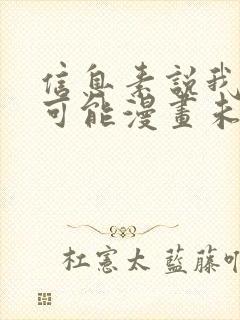 信息素說我
可能漫畫未
杜憲太 藍藤